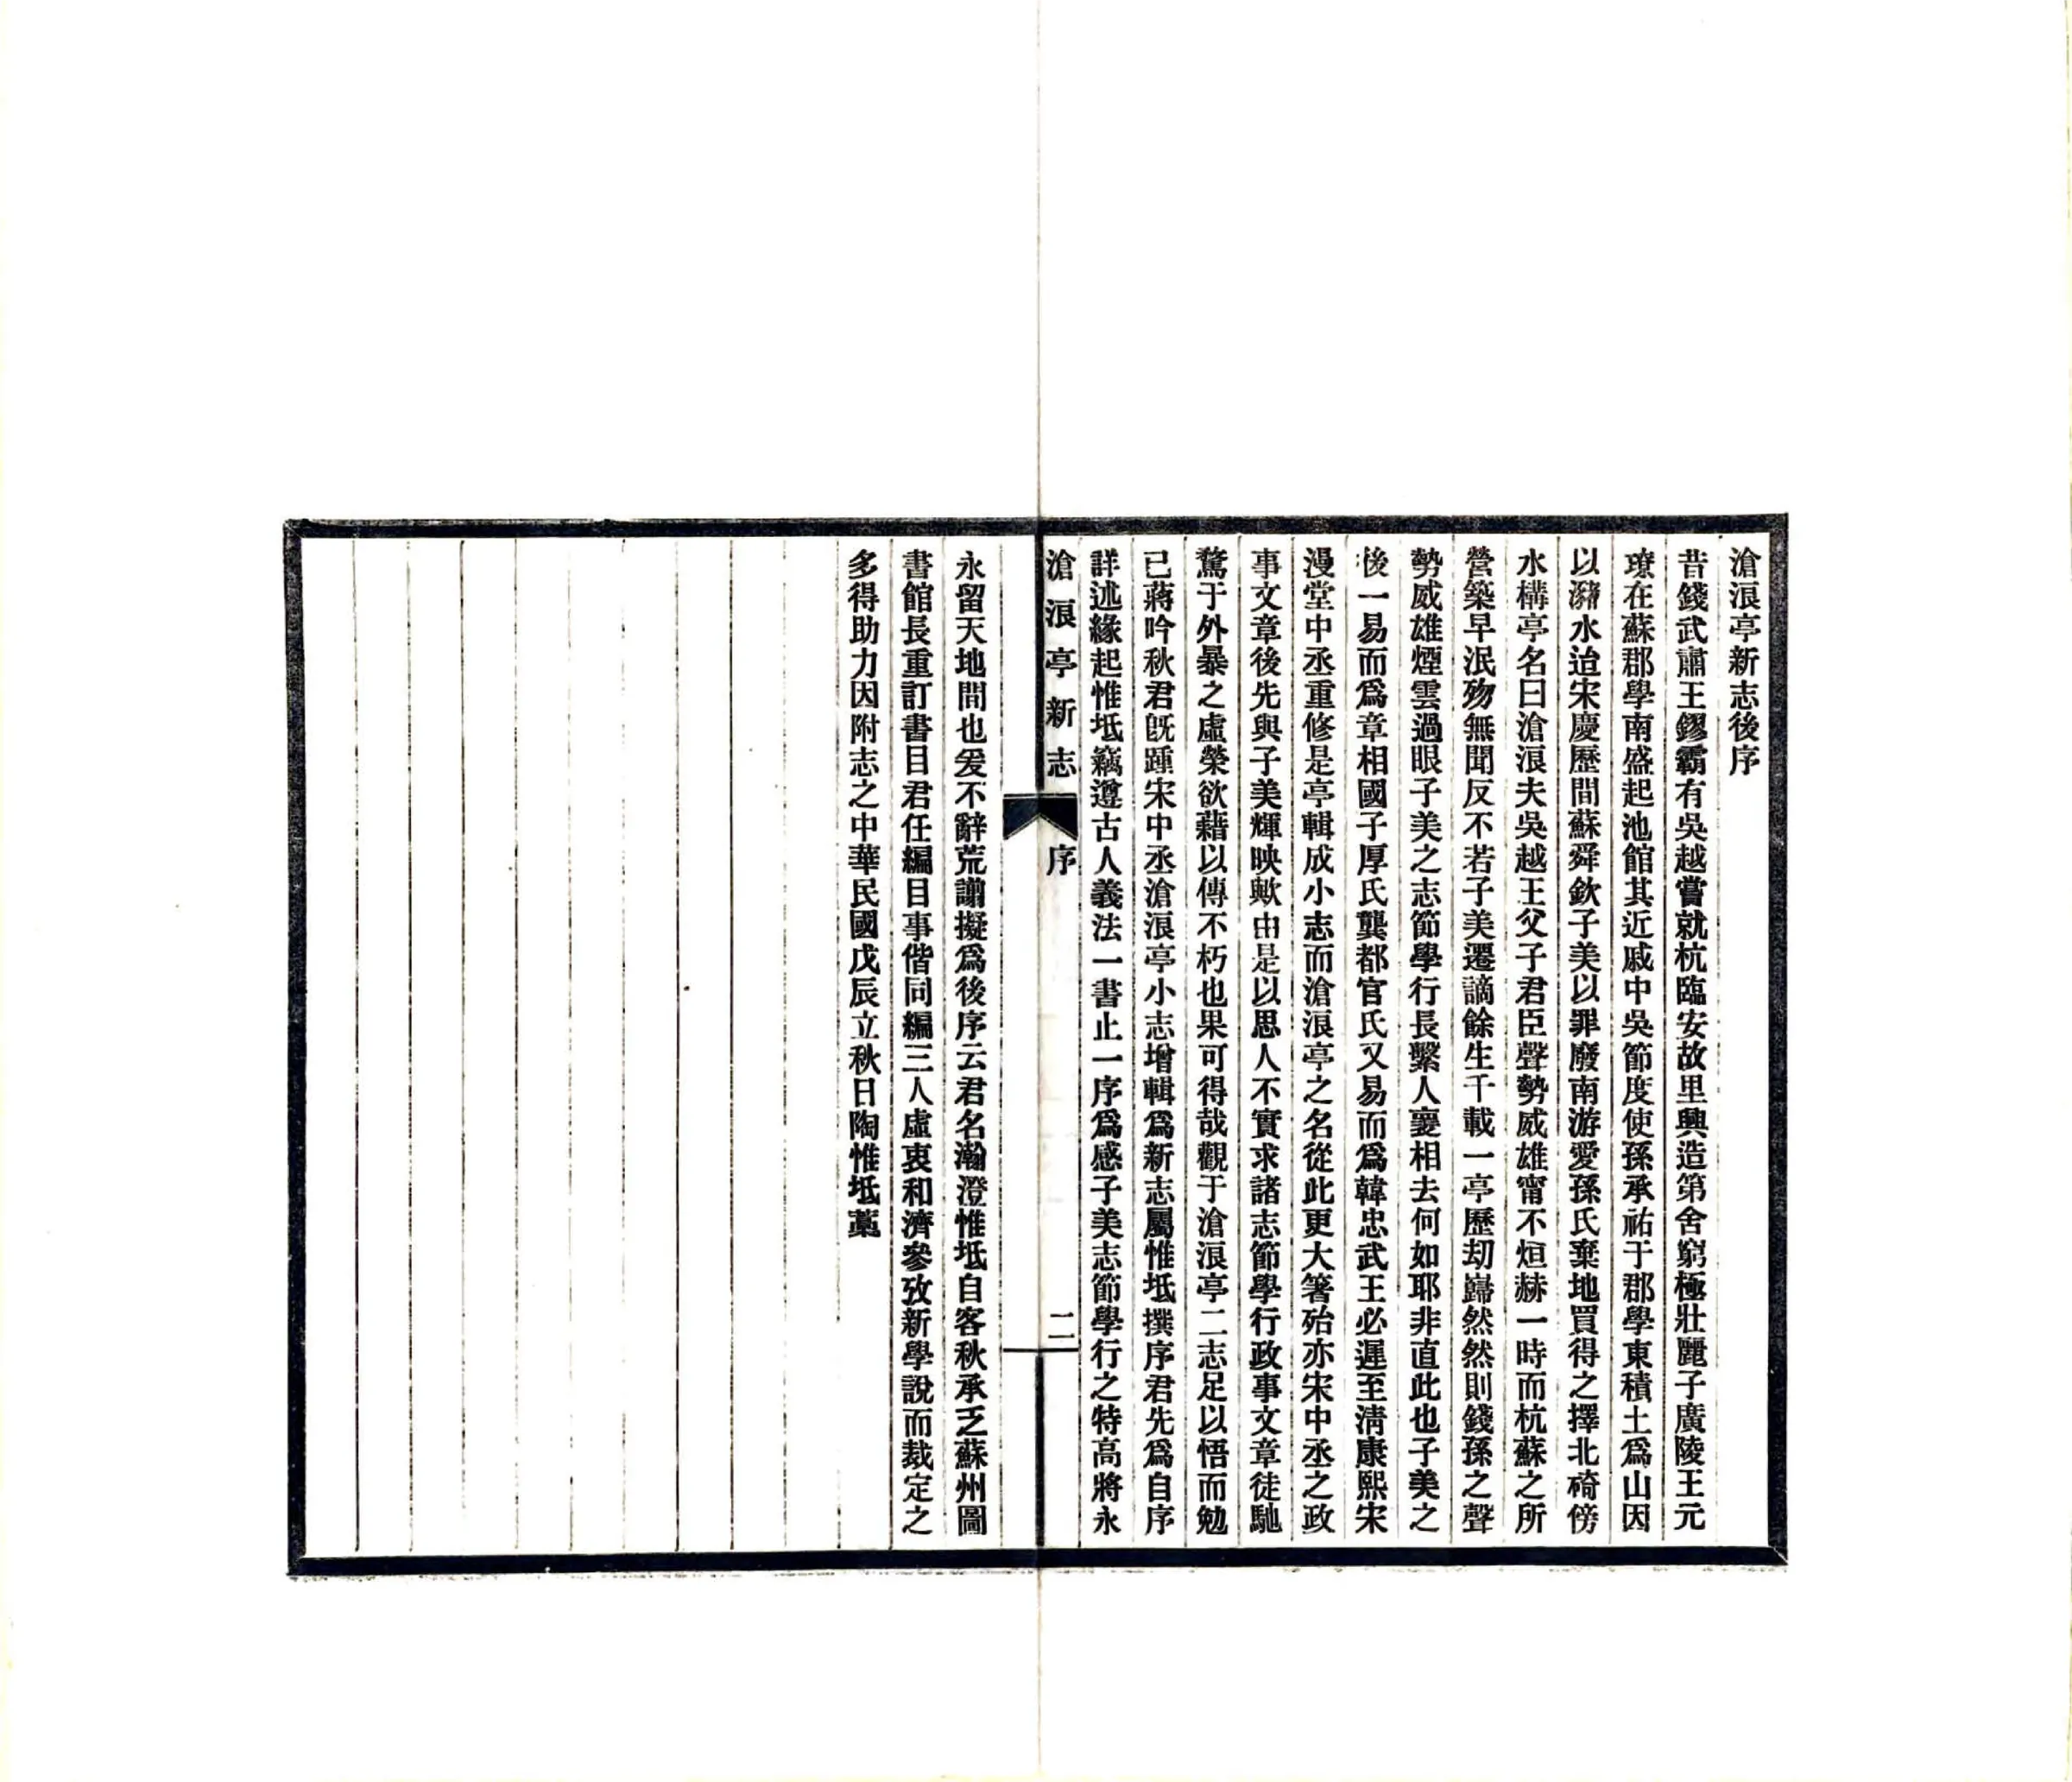 滄浪亭新志後序
昔錢武肅王鏐霸有吳越嘗就杭臨安故里興造第舍窮極壯麗子廣陵王元
璙在蘇郡學南盛起池館其近戚中吳節度使孫承祐于郡學東積土爲山因
以瀦水迨宋慶歷間蘇舜欽子美以罪廢南游愛孫氏棄地買得之擇北碕傍
水構亭名曰滄浪夫吳越王父子君臣聲勢威雄甯不烜赫一時而杭蘇之所
營築早泯歾無聞反不若子美遷謫餘生千載一亭歷刼巋然然則錢孫之聲
勢威雄煙雲過眼子美之志節學行長繫人寰相去何如耶非直此也子美之
後一易而爲章相國子厚氏龔都官氏又易而爲韓忠武王必遲至淸康熙宋
漫堂中丞重修是亭輯成小志而滄浪亭之名從此更大箸殆亦宋中丞之政
事文章後先與子美輝映歟由是以思人不實求諸志節學行政事文章徒馳
騖于外暴之虛榮欲藉以傳不朽也果可得哉觀于滄浪亭二志足以悟而勉
已蔣吟秋君旣踵宋中丞滄浪亭小志增輯爲新志屬惟坻撰序君先爲自序
詳述緣起惟坻竊遵古人義法一書止一序爲感子美志節學行之特高將永
滄浪亭新志
序
二
永留天地間也爰不辭荒謭擬爲後序云君名瀚澄惟坻自客秋承乏蘇州圖
書館長重訂書目君任編目事偕同編三人虛衷和濟參攷新學說而裁定之
多得助力因附志之中華民國戊辰立秋日陶惟坻藁